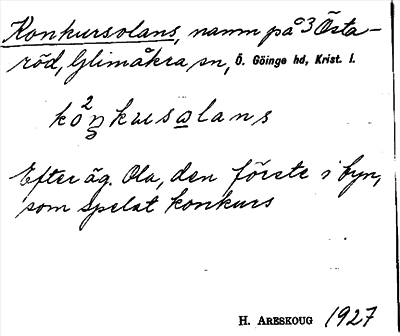 Konkursolans, namn på 3 Östa-
röd, Glimåkra sn, Ö. Göinge hd, Krist. l.
kå2ŋkusolans
Efter äg. Ola, den förste i byn,
som spelat konkurs
H. ARESKOUG 1927